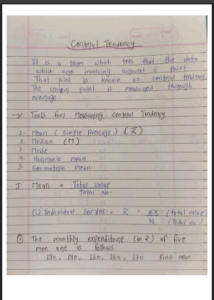 Central Tendency
It is a term which tells that the data
which are involving around a point.
That point is known as central tendency.
The central point is measured through
average
→ Tools for Measuring Central Tendency
1. Mean (Simple Average) (x̄)
2. Median (M)
3. Mode
4. Harmonic mean
5. Geometric mean
I Mean = Total value
Total no.
(1) Individual Series = x̄ = Σx (total value)
N (Total no.)
① The monthly expenditure (in ₹) of five
men are as follows:
find mean